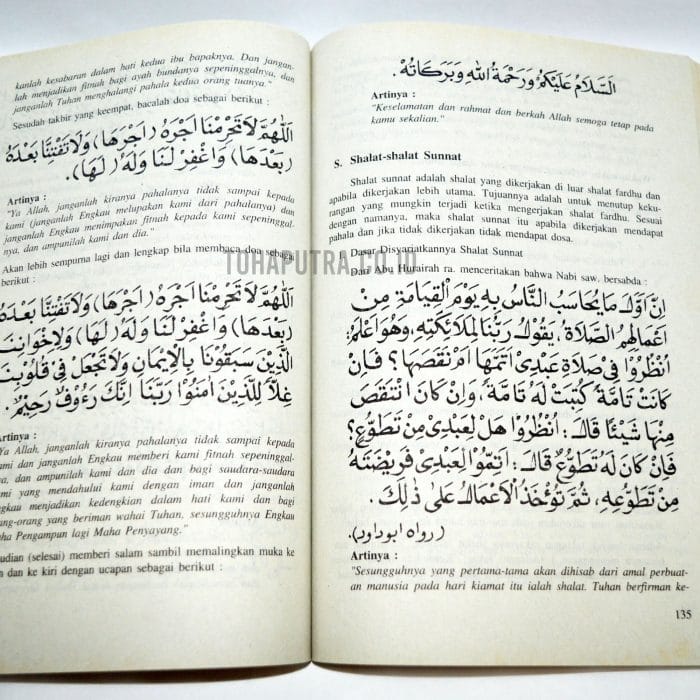 kanlah kesabaran dalam hati kedua ibu bapaknya. Dan jangan-
lah menjadikan fitnah bagi ayah bundanya sepeninggalnya, dan
janganlah Tuhan menghalangi pahala kedua orang tuanya."
Sesudah takbir yang keempat, bacalah doa sebagai berikut :
اَللّٰهُمَّ لَا تَحْرِمْنَا اَجْرَهُ (اَجْرَهَا) وَلَا تَفْتِنَّا بَعْدَهُ
(بَعْدَهَا) وَاغْفِرْ لَنَا وَلَهُ (لَهَا).
Artinya :
"Ya Allah, janganlah kiranya pahalanya tidak sampai kepada
kami (janganlah Engkau melupakan kami dari pahalanya) dan
janganlah Engkau menimpakan fitnah kepada kami sepeninggal-
nya, dan ampunilah kami dan dia."
Akan lebih sempurna lagi dan lengkap bila membaca doa sebagai
berikut :
اَللّٰهُمَّ لَا تَحْرِمْنَا اَجْرَهُ (اَجْرَهَا) وَلَا تَفْتِنَّا بَعْدَهُ
(بَعْدَهَا) وَاغْفِرْ لَنَا وَلَهُ (لَهَا) وَلِاِخْوَانِنَا
الَّذِيْنَ سَبَقُوْنَا بِالْاِيْمَانِ وَلَا تَجْعَلْ فِيْ قُلُوْبِنَا
غِلًّا لِلَّذِيْنَ اٰمَنُوْا رَبَّنَا اِنَّكَ رَءُوْفٌ رَحِيْمٌ.
Artinya :
"Ya Allah, janganlah kiranya pahalanya tidak sampai kepada
kami dan janganlah Engkau memberi kami fitnah sepeninggal-
nya, dan ampunilah kami dan dia dan bagi saudara-saudara
kami yang mendahului kami dengan iman dan janganlah
Engkau menjadikan kedengkian dalam hati kami dan bagi
orang-orang yang beriman wahai Tuhan, sesungguhnya Engkau
Maha Pengampun lagi Maha Penyayang."
udian (selesai) memberi salam sambil memalingkan muka ke
n dan ke kiri dengan ucapan sebagai berikut :
اَلسَّلَامُ عَلَيْكُمْ وَرَحْمَةُ اللهِ وَبَرَكَاتُهُ.
Artinya :
"Keselamatan dan rahmat dan berkah Allah semoga tetap pada
kamu sekalian."
S. Shalat-shalat Sunnat
Shalat sunnat adalah shalat yang dikerjakan di luar shalat fardhu dan
apabila dikerjakan lebih utama. Tujuannya adalah untuk menutup keku-
rangan yang mungkin terjadi ketika mengerjakan shalat fardhu. Sesuai
dengan namanya, maka shalat sunnat itu apabila dikerjakan mendapat
pahala dan jika tidak dikerjakan tidak mendapat dosa.
Dasar Disyariatkannya Shalat Sunnat
Dari Abu Hurairah ra. menceritakan bahwa Nabi saw, bersabda :
اِنَّ اَوَّلَ مَا يُحَاسَبُ النَّاسُ بِهِ يَوْمَ الْقِيَامَةِ مِنْ
اَعْمَالِهِمُ الصَّلَاةُ، يَقُوْلُ رَبُّنَا لِمَلَائِكَتِهِ وَهُوَ اَعْلَمُ:
اُنْظُرُوْا فِيْ صَلَاةِ عَبْدِيْ اَتَمَّهَا اَمْ نَقَصَهَا؟ فَاِنْ
كَانَتْ تَامَّةً كُتِبَتْ لَهُ تَامَّةً، وَاِنْ كَانَ انْتَقَصَ
مِنْهَا شَيْئًا قَالَ: اُنْظُرُوْا هَلْ لِعَبْدِيْ مِنْ تَطَوُّعٍ؟
فَاِنْ كَانَ لَهُ تَطَوُّعٌ قَالَ: اَتِمُّوْا لِعَبْدِيْ فَرِيْضَتَهُ
مِنْ تَطَوُّعِهِ، ثُمَّ تُؤْخَذُ الْاَعْمَالُ عَلٰى ذٰلِكَ.
(رواه ابو داود).
Artinya :
"Sesungguhnya yang pertama-tama akan dihisab dari amal perbuat-
an manusia pada hari kiamat itu ialah shalat. Tuhan berfirman ke-
135
TUHAPUTRA.CO.ID